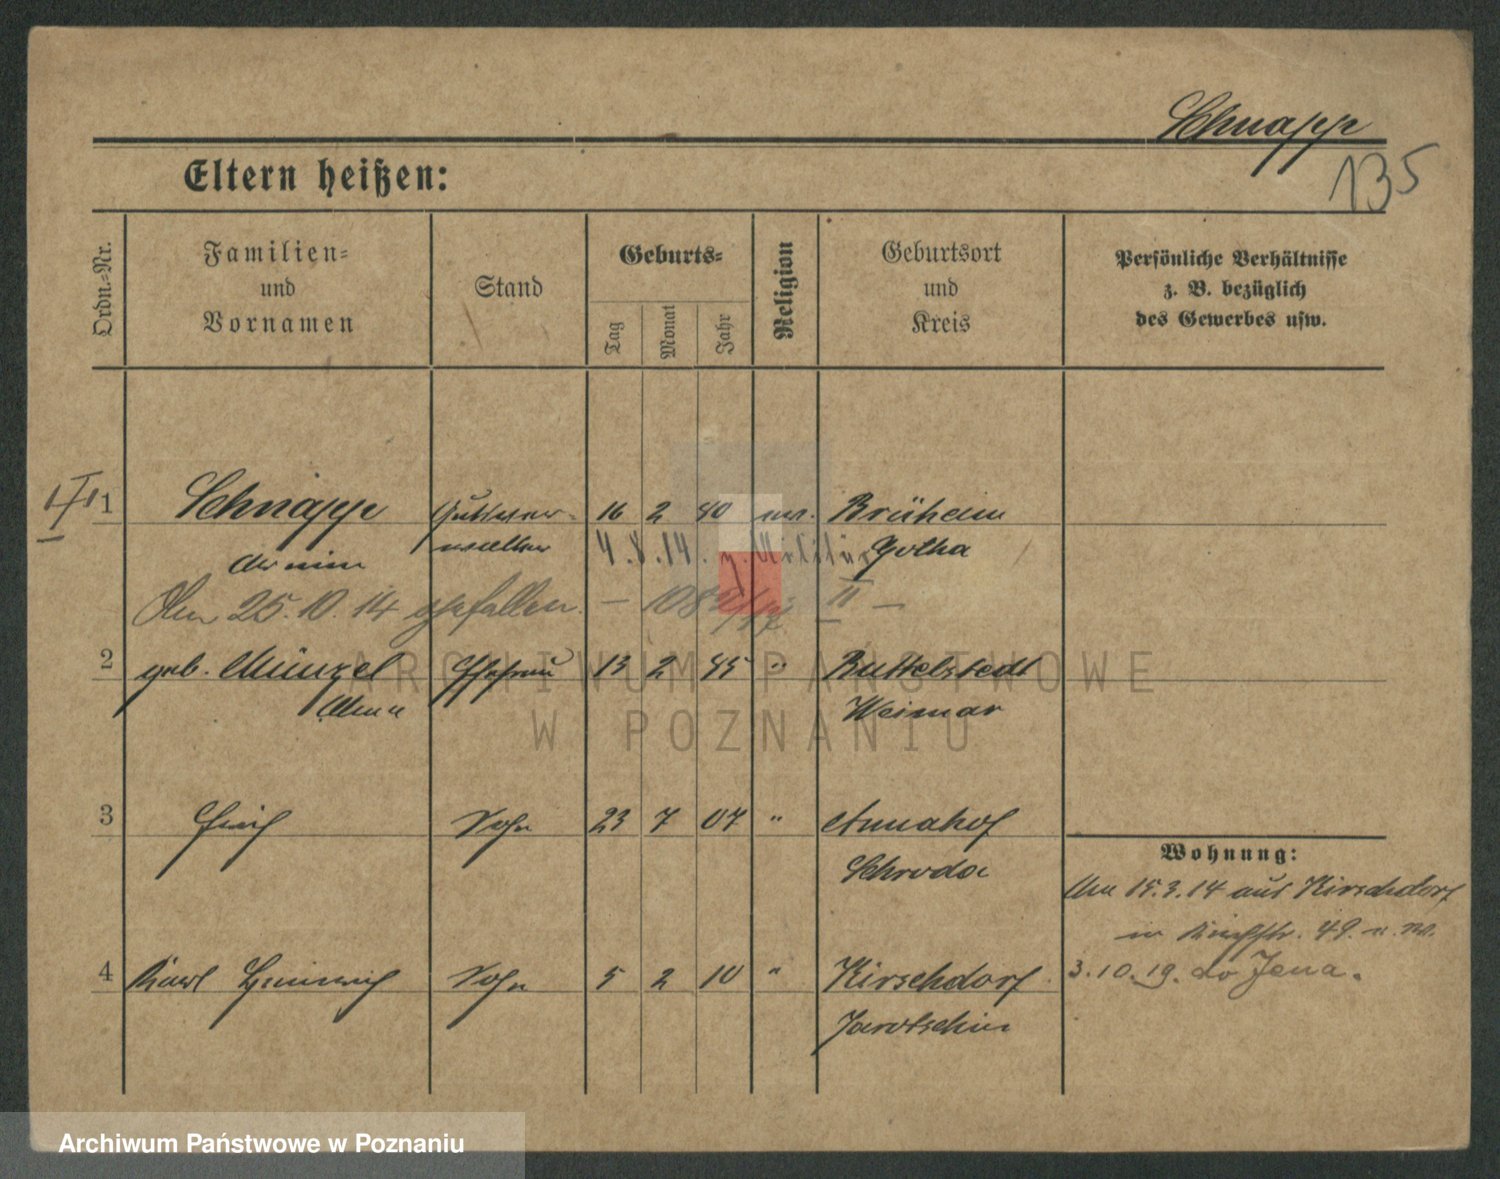 Schnapp
135
Eltern heißen:
Ordn.-Nr.
Familien-
und
Vornamen
Stand
Geburts-
Tag
Monat
Jahr
Religion
Geburtsort
und
Kreis
Persönliche Verhältnisse
z. B. bezüglich
des Gewerbes usw.
1 Schnapp 16 2 80 ev. Brüheim
Armin 4.8.14. z. Militär Gotha
Am 25.10.14 gefallen. —
2 geb. Münzel Ehefrau 13 2 85 " Buttelstedt
Anna Weimar
3 Erich Sohn 23 7 07 " Annahof
Schroda
Wohnung:
Am 15.3.14 aus Kirschdorf
in 49.
4 Karl Heinrich Sohn 5 2 10 " Kirschdorf
Jarotschin
3.10.19. Jena.
ARCHIWUM PAŃSTWOWE
W POZNANIU
Archiwum Państwowe w Poznaniu